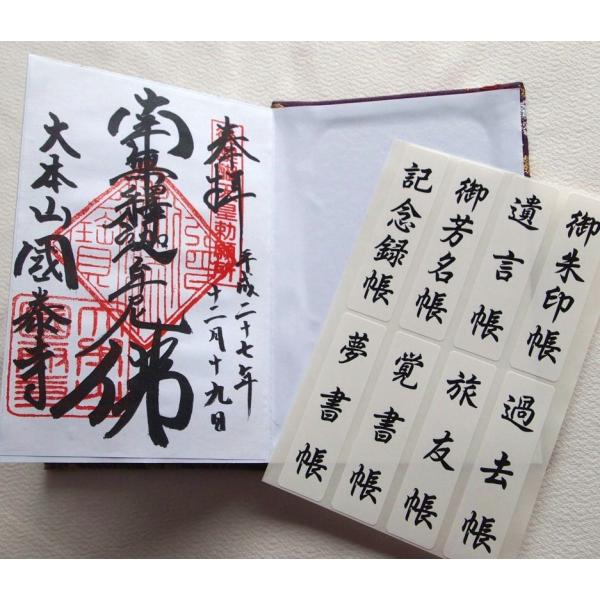 奉拝
平成二十七年
十二月十九日
南無釋迦牟尼佛
大本山國泰寺
御朱印帳
遺言帳
御芳名帳
記念録帳
過去帳
旅友帳
覚書帳
夢書帳